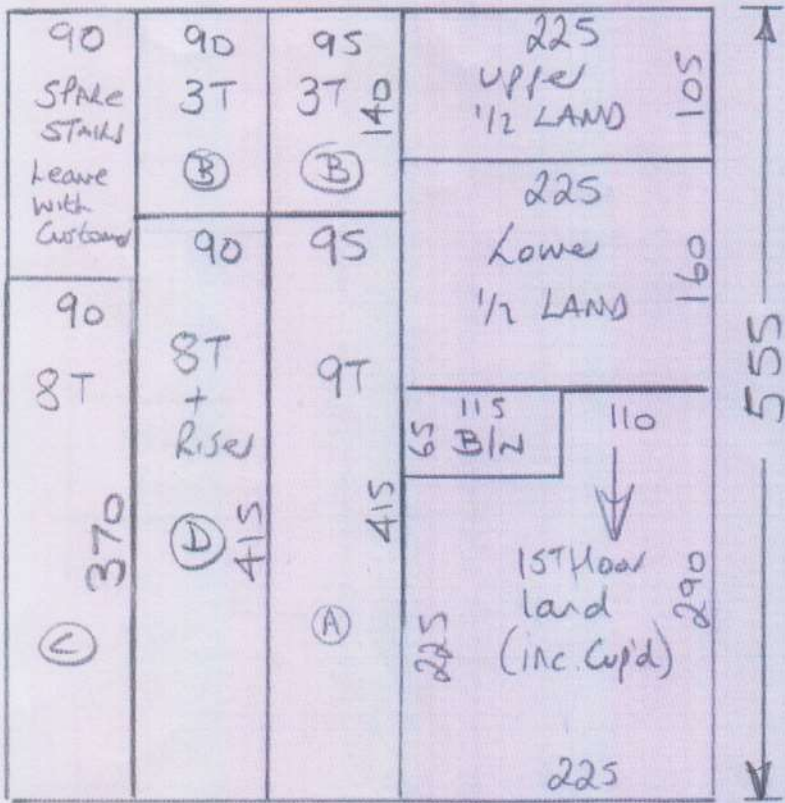 90
SPARE
STAIRS
Leave
with
Customer
90
3T
B
95
3T
140
B
225
upper
1/2 LAND
105
225
Lower
1/2 LAND
160
90
8T
370
C
90
8T
+
Riser
D
415
95
9T
415
A
65
115
BIN
110
1ST floor
land
(inc. Cup'd)
225
290
225
555